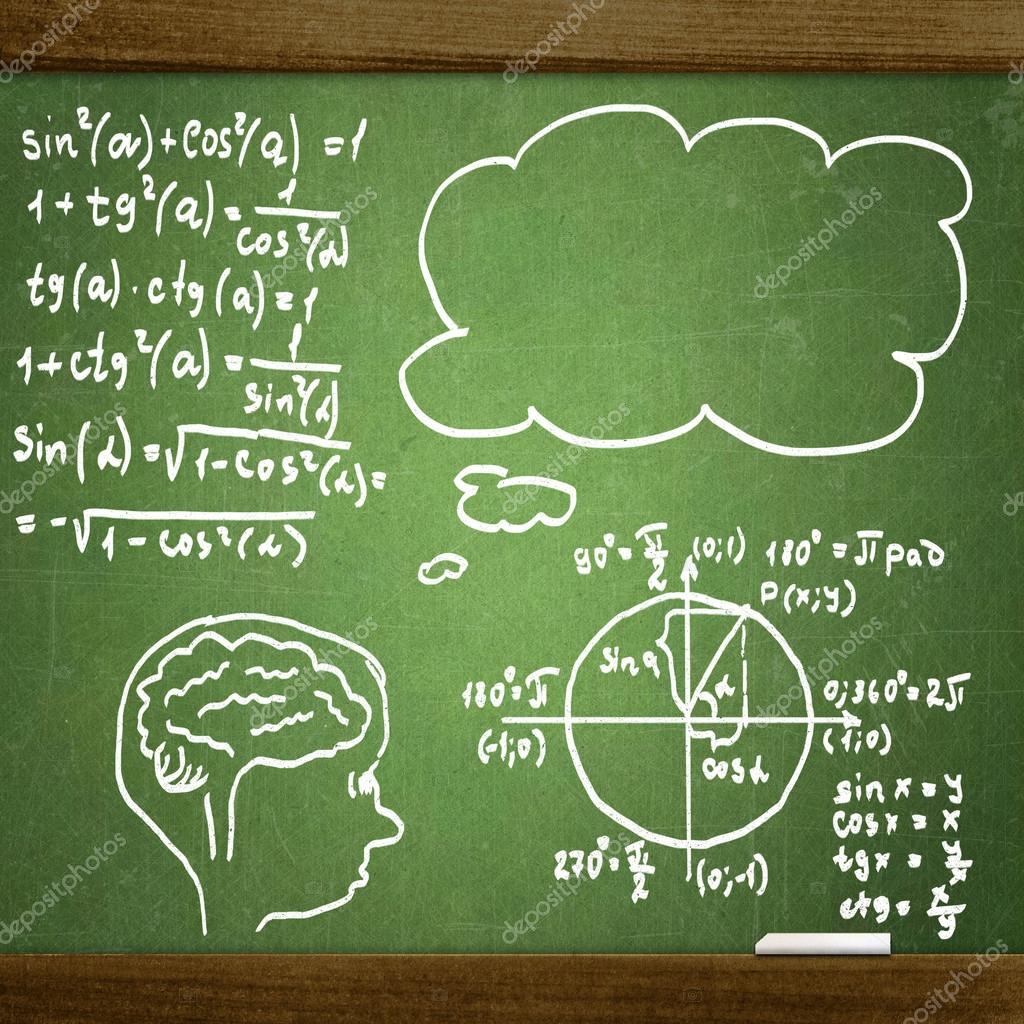 sin²(α)+cos²(α) =1
1+tg²(α)= 1/cos²(α)
tg(α)·ctg(α)=1
1+ctg²(α)= 1/sin²(α)
sin(α)=√1-cos²(α)=
=-√1-cos²(α)
90°=π/2 (0;1) 180°=π рад
P(x;y)
sinα
α
180°=π
0;360°=2π
(-1;0)
(1;0)
cosα
270°=π/2 (0;-1)
sin x = y
cosx = x
tgx = y/x
ctg= x/y
depositphotos